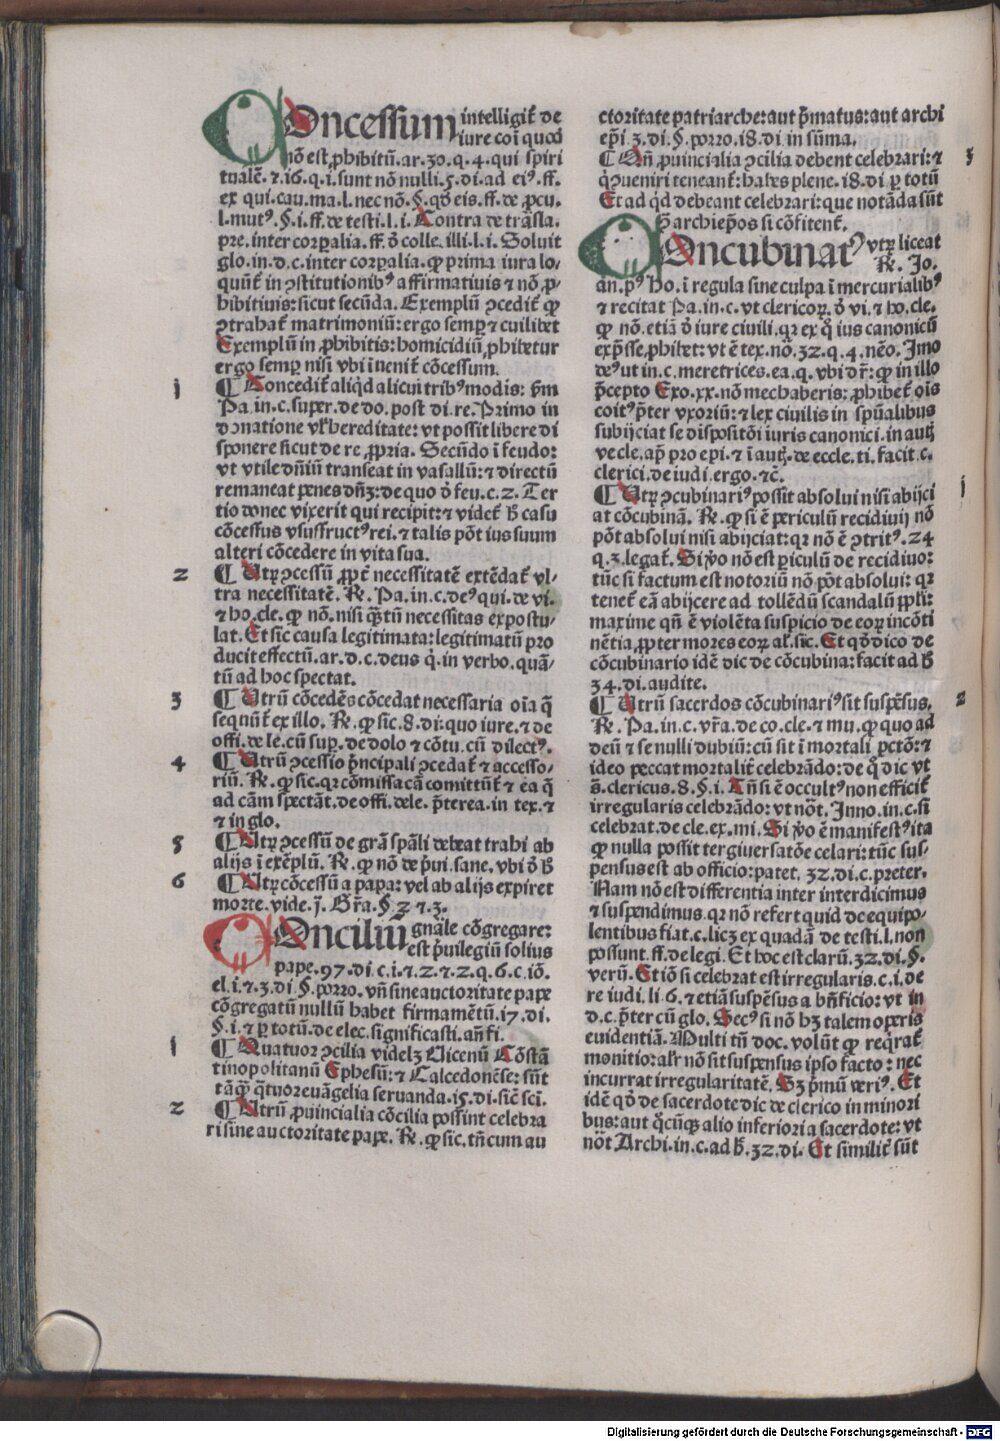 COncessum intelligit̃ de
iure coĩ quod
nõ est ꝓhibitũ. ar. 30. q. 4. qui spiri
tualẽ. ⁊. 16. q. i. sunt nõ nulli. 5. di. ad eiꝰ. ff.
ex qui. cau. ma. l. nec nõ. §. qđ eis. ff. de ꝓcu.
l. mutꝰ. §. i. ff. de testi. l. i. Contra de trãsla.
pre. inter corꝑalia. ff. ð colle. illi. l. i. Soluit
glo. in. d. c. inter corꝑalia. ꝙ prima iura lo-
quũt̃ in ꝯstitutionibꝰ affirmatiuis ⁊ nõ ꝓ-
hibitiuis: sicut secũda. Exemplũ ꝯcedit̃ ꝙ
ꝯtrahat̃ matrimoniũ: ergo semꝑ ⁊ cuilibet
Exemplũ in ꝓhibitis: homicidiũ ꝓhibetur
ergo semꝑ nisi vbi ĩuenit̃ cõcessum.
1 ¶ Concedit̃ aliqd alicui tribꝰ modis: ẜm
Pa. in. c. super. de do. post di. re. Primo in
donatione vl̕ hereditate: vt possit libere di
sponere sicut de re ꝓpria. Secũdo ĩ feudo:
vt vtile dñiũ transeat in vasallũ: ⁊ directũ
remaneat penes dñꝫ: de quo ð feu. c. 2. Ter
tio donec vixerit qui recipit: ⁊ videt̃ ħ casu
cõcessus vsufructꝰ rei. ⁊ talis põt ius suum
alteri cõcedere in vita sua.
2 ¶ Utꝝ ꝯcessũ ꝓpt̃ necessitatẽ extẽdat̃ vl-
tra necessitatẽ. ℞. Pa. in. c. deꝰ qui. de vi.
⁊ ho. cle. ꝙ nõ. nisi q̃tũ necessitas expostu-
lat. Et sic causa legitimata: legitimatũ pro
ducit effectũ. ar. d. c. deus q̇. in verbo. quã-
tũ ad hoc spectat.
3 ¶ Utrũ cõcedẽs cõcedat necessaria oĩa q̃
sequũt̃ ex illo. ℞. ꝙ sic. 8. di. quo iure. ⁊ de
offi. de le. cũ suꝑ. de dolo ⁊ cõtu. cũ dilectꝰ.
4 ¶ Utrũ ꝯcessio p̃ncipali ꝯcedat̃ ⁊ accesso-
riũ. ℞. ꝙ sic. qꝛ cõmissa cã comittũt̃ ⁊ ea q̃
ad cãm spectãt. de offi. dele. p̃terea. in tex. ⁊
⁊ in glo.
5 ¶ Utꝝ ꝯcessũ de grã spãli debeat trahi ab
alijs ĩ exẽplũ. ℞. ꝙ nõ de p̃ui. sane. vbi ð ħ
6 ¶ Utꝝ cõcessũ a papa: vel ab alijs expiret
morte. vide. j. Gr̃a. §. 2 ⁊. 3.
COnciliũ gñale cõgregare:
est p̃uilegiũ solius
pape. 97. di c. i. ⁊. 2. ⁊. 2. q. 6. c. iõ.
el. i. ⁊. 3. di. §. porro. vñ sine auctoritate pape
cõgregatũ nullũ habet firmamẽtũ. 17. di.
§. i. ⁊ ꝑ totũ. de elec. significasti. añ fi.
1 ¶ Quatuor ꝯcilia videlꝫ Nicenũ Cõstã
tinopolitanũ Ephesũ: ⁊ Calcedonẽse: sũt
tãq̃ q̃tuor euãgelia seruanda. 15. di. sic̃ sci.
2 ¶ Utrũ ꝓuincialia cõcilia possint celebra
ri sine auctoritate pape. ℞. ꝙ sic. tñ cum au
ctoritate patriarche: aut p̃matus: aut archi
ep̃i. 3. di. §. porro. 18. di. in sũma.
3 ¶ Qñ ꝓuincialia ꝯcilia debent celebrari: ⁊
q̇ ꝯuenire teneant̃: habes plene. 18. di. ꝑ totũ
Et ad qd debeant celebrari: que notãda sũt
ꝑ archiep̃os si cõfitent̃.
COncubinarꝰ vtꝝ liceat
℞. Jo.
an. pꝰ Ho. ĩ regula sine culpa ĩ mercurialibꝰ
⁊ recitat Pa. in. c. vt clericoꝝ. ð vi. ⁊ ho. cle.
ꝙ nõ. etiã ð iure ciuili. qꝛ ex q̇ ius canonicũ
exp̃sse ꝓhibet: vt ẽ tex. nõ. 32. q. 4. nẽo. Jmo
deꝰ ut in. c. meretrices. ea. q. vbi dr̃: ꝙ in illo
p̃cepto Exo. xx. nõ mechaberis: ꝓhibet̃ oĩs
coitꝰ p̃ter vxoriũ: ⁊ lex ciuilis in spũalibus
subijciat se dispositõi iuris canonici. in autħ
ve cle. ap̃ pro epi. ⁊ ĩ autħ. de eccle. ti. facit. c.
clerici. de iudi. ergo. ⁊c̃.
1 ¶ Utꝝ ꝯcubinariꝰ possit absolui nisi abijci
at cõcubinã. ℞. ꝙ si ẽ periculũ recidiuij nõ
põt absolui nisi abijciat: qꝛ nõ ẽ ꝯtritꝰ. 24
q. 3. legat̃. Si ṽo nõ est ꝑiculũ de recidiuo:
tũc si factum est notoriũ nõ põt absolui: qꝛ
tenet̃ eã abijcere ad tollẽdũ scandalũ ꝓpli:
maxime qñ ẽ violẽta suspicio de eoꝝ incõti
nẽtia, ꝓpter mores eoꝝ al̕. sic. Et qð dico de
cõcubinario idẽ dic de cõcubina: facit ad ħ
34. di. audite.
2 ¶ Utrũ sacerdos cõcubinariꝰ sit suspẽsus.
℞. Pa. in. c. vr̃a. de co. cle. ⁊ mu. ꝙ quo ad
deũ ⁊ se nulli dubiũ: cũ sit ĩ mortali pctõ: ⁊
ideo peccat mortalit̃ celebrãdo: de q̇ dic vt
s̃. clericus. 8. §. i. Añ si ẽ occultꝰ non efficit̃
irregularis celebrãdo: vt nõt. Inno. in. c. si
celebrat. de cle. ex. mi. Si ṽo ẽ manifestꝰ ita
ꝙ nulla possit tergiuersatõe celari: tũc sus-
pensus est ab officio: patet. 32. di. c. preter.
Nam nõ est differentia inter interdicimus
⁊ suspendimus. qꝛ nõ refert quid de equipo-
lentibus fiat. c. licꝫ ex quadã de testi. l. non
possunt. ff. de legi. Et hoc est clarũ. 32. di. §.
verũ. Et iõ si celebrat est irregularis. c. i. de
re iudi. li. 6. ⁊ etiã suspẽsus a bñficio: vt in
d. c. p̃ter cũ glo. Secꝰ si nõ hꝫ talem operis
euidentiã. Multi tñ doc. volũt ꝙ req̃rat̃
monitio: alr̃ nõ sit suspensus ipso facto: nec
incurrat irregularitatẽ. Sꝫ p̃mũ veriꝰ. Et
idẽ qð de sacerdote dic de clerico in minori
bus: aut q̇cũqꝫ alio inferiori a sacerdote: vt
nõt Archi. in. c. ad ħ. 32. di. Et similit̃ sũt
Digitalisierung gefördert durch die Deutsche Forschungsgemeinschaft - DFG